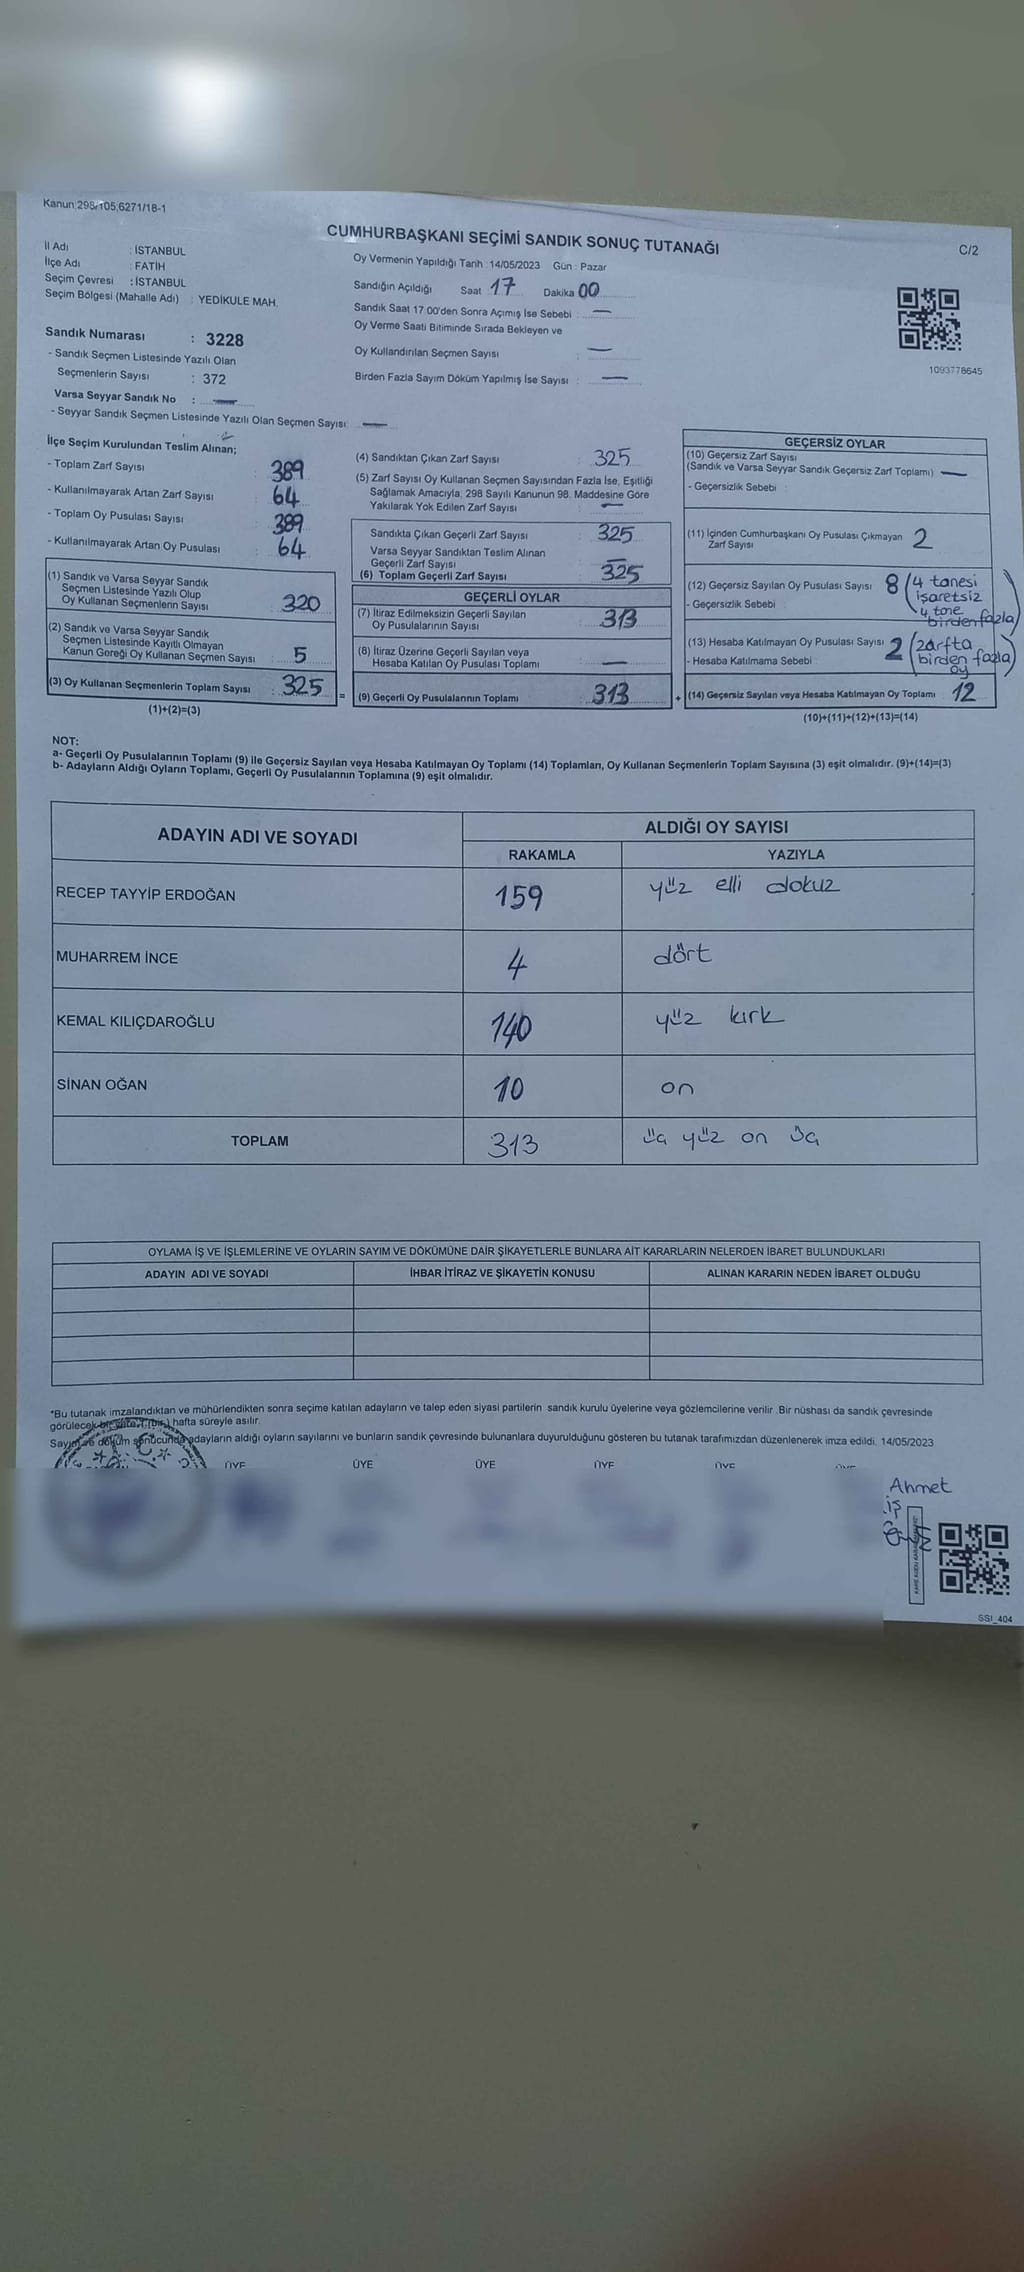 Kanun:298/105,6271/18-1
CUMHURBAŞKANI SEÇİMİ SANDIK SONUÇ TUTANAĞI
C/2
İl Adı : İSTANBUL
İlçe Adı : FATİH
Seçim Çevresi : İSTANBUL
Seçim Bölgesi (Mahalle Adı) : YEDİKULE MAH.
Oy Vermenin Yapıldığı Tarih : 14/05/2023 Gün : Pazar
Sandığın Açıldığı Saat 17 Dakika 00
Sandık Saat 17:00'den Sonra Açımış İse Sebebi : —
Oy Verme Saati Bitiminde Sırada Bekleyen ve
Oy Kullandırılan Seçmen Sayısı : —
Birden Fazla Sayım Döküm Yapılmış İse Sayısı : —
1093778645
Sandık Numarası : 3228
- Sandık Seçmen Listesinde Yazılı Olan
Seçmenlerin Sayısı : 372
Varsa Seyyar Sandık No : —
- Seyyar Sandık Seçmen Listesinde Yazılı Olan Seçmen Sayısı: —
İlçe Seçim Kurulundan Teslim Alınan;
- Toplam Zarf Sayısı : 389
- Kullanılmayarak Artan Zarf Sayısı : 64
- Toplam Oy Pusulası Sayısı : 389
- Kullanılmayarak Artan Oy Pusulası : 64
(1) Sandık ve Varsa Seyyar Sandık
Seçmen Listesinde Yazılı Olup
Oy Kullanan Seçmenlerin Sayısı : 320
(2) Sandık ve Varsa Seyyar Sandık
Seçmen Listesinde Kayıtlı Olmayan
Kanun Gereği Oy Kullanan Seçmen Sayısı : 5
(3) Oy Kullanan Seçmenlerin Toplam Sayısı : 325
(1)+(2)=(3)
=
(4) Sandıktan Çıkan Zarf Sayısı : 325
(5) Zarf Sayısı Oy Kullanan Seçmen Sayısından Fazla İse, Eşitliği
Sağlamak Amacıyla, 298 Sayılı Kanunun 98. Maddesine Göre
Yakılarak Yok Edilen Zarf Sayısı : —
Sandıkta Çıkan Geçerli Zarf Sayısı : 325
Varsa Seyyar Sandıktan Teslim Alınan
Geçerli Zarf Sayısı : —
(6) Toplam Geçerli Zarf Sayısı : 325
GEÇERLİ OYLAR
(7) İtiraz Edilmeksizin Geçerli Sayılan
Oy Pusulalarının Sayısı : 313
(8) İtiraz Üzerine Geçerli Sayılan veya
Hesaba Katılan Oy Pusulası Toplamı : —
(9) Geçerli Oy Pusulalarının Toplamı : 313
+
GEÇERSİZ OYLAR
(10) Geçersiz Zarf Sayısı
(Sandık ve Varsa Seyyar Sandık Geçersiz Zarf Toplamı) : —
- Geçersizlik Sebebi :
(11) İçinden Cumhurbaşkanı Oy Pusulası Çıkmayan
Zarf Sayısı : 2
(12) Geçersiz Sayılan Oy Pusulası Sayısı : 8 (4 tanesi
işaretsiz
- Geçersizlik Sebebi : 4 tane
birden fazla)
(13) Hesaba Katılmayan Oy Pusulası Sayısı : 2 (zarfta
- Hesaba Katılmama Sebebi : birden fazla
oy)
(14) Geçersiz Sayılan veya Hesaba Katılmayan Oy Toplamı 12
(10)+(11)+(12)+(13)=(14)
NOT:
a- Geçerli Oy Pusulalarının Toplamı (9) ile Geçersiz Sayılan veya Hesaba Katılmayan Oy Toplamı (14) Toplamları, Oy Kullanan Seçmenlerin Toplam Sayısına (3) eşit olmalıdır. (9)+(14)=(3)
b- Adayların Aldığı Oyların Toplamı, Geçerli Oy Pusulalarının Toplamına (9) eşit olmalıdır.
ADAYIN ADI VE SOYADI
ALDIĞI OY SAYISI
RAKAMLA YAZIYLA
RECEP TAYYİP ERDOĞAN 159 yüz elli dokuz
MUHARREM İNCE 4 dört
KEMAL KILIÇDAROĞLU 140 yüz kırk
SİNAN OĞAN 10 on
TOPLAM 313 üç yüz on üç
OYLAMA İŞ VE İŞLEMLERİNE VE OYLARIN SAYIM VE DÖKÜMÜNE DAİR ŞİKAYETLERLE BUNLARA AİT KARARLARIN NELERDEN İBARET BULUNDUKLARI
ADAYIN ADI VE SOYADI İHBAR İTİRAZ VE ŞİKAYETİN KONUSU ALINAN KARARIN NEDEN İBARET OLDUĞU
*Bu tutanak imzalandıktan ve mühürlendikten sonra seçime katılan adayların ve talep eden siyasi partilerin sandık kurulu üyelerine veya gözlemcilerine verilir. Bir nüshası da sandık çevresinde
görülecek bir yere 1 (bir) hafta süreyle asılır.
Sayım ve döküm sonucunda adayların aldığı oyların sayılarını ve bunların sandık çevresinde bulunanlara duyurulduğunu gösteren bu tutanak tarafımızdan düzenlenerek imza edildi. 14/05/2023
ÜYE ÜYE ÜYE ÜYE ÜYE ÜYE
Ahmet
SSI_404